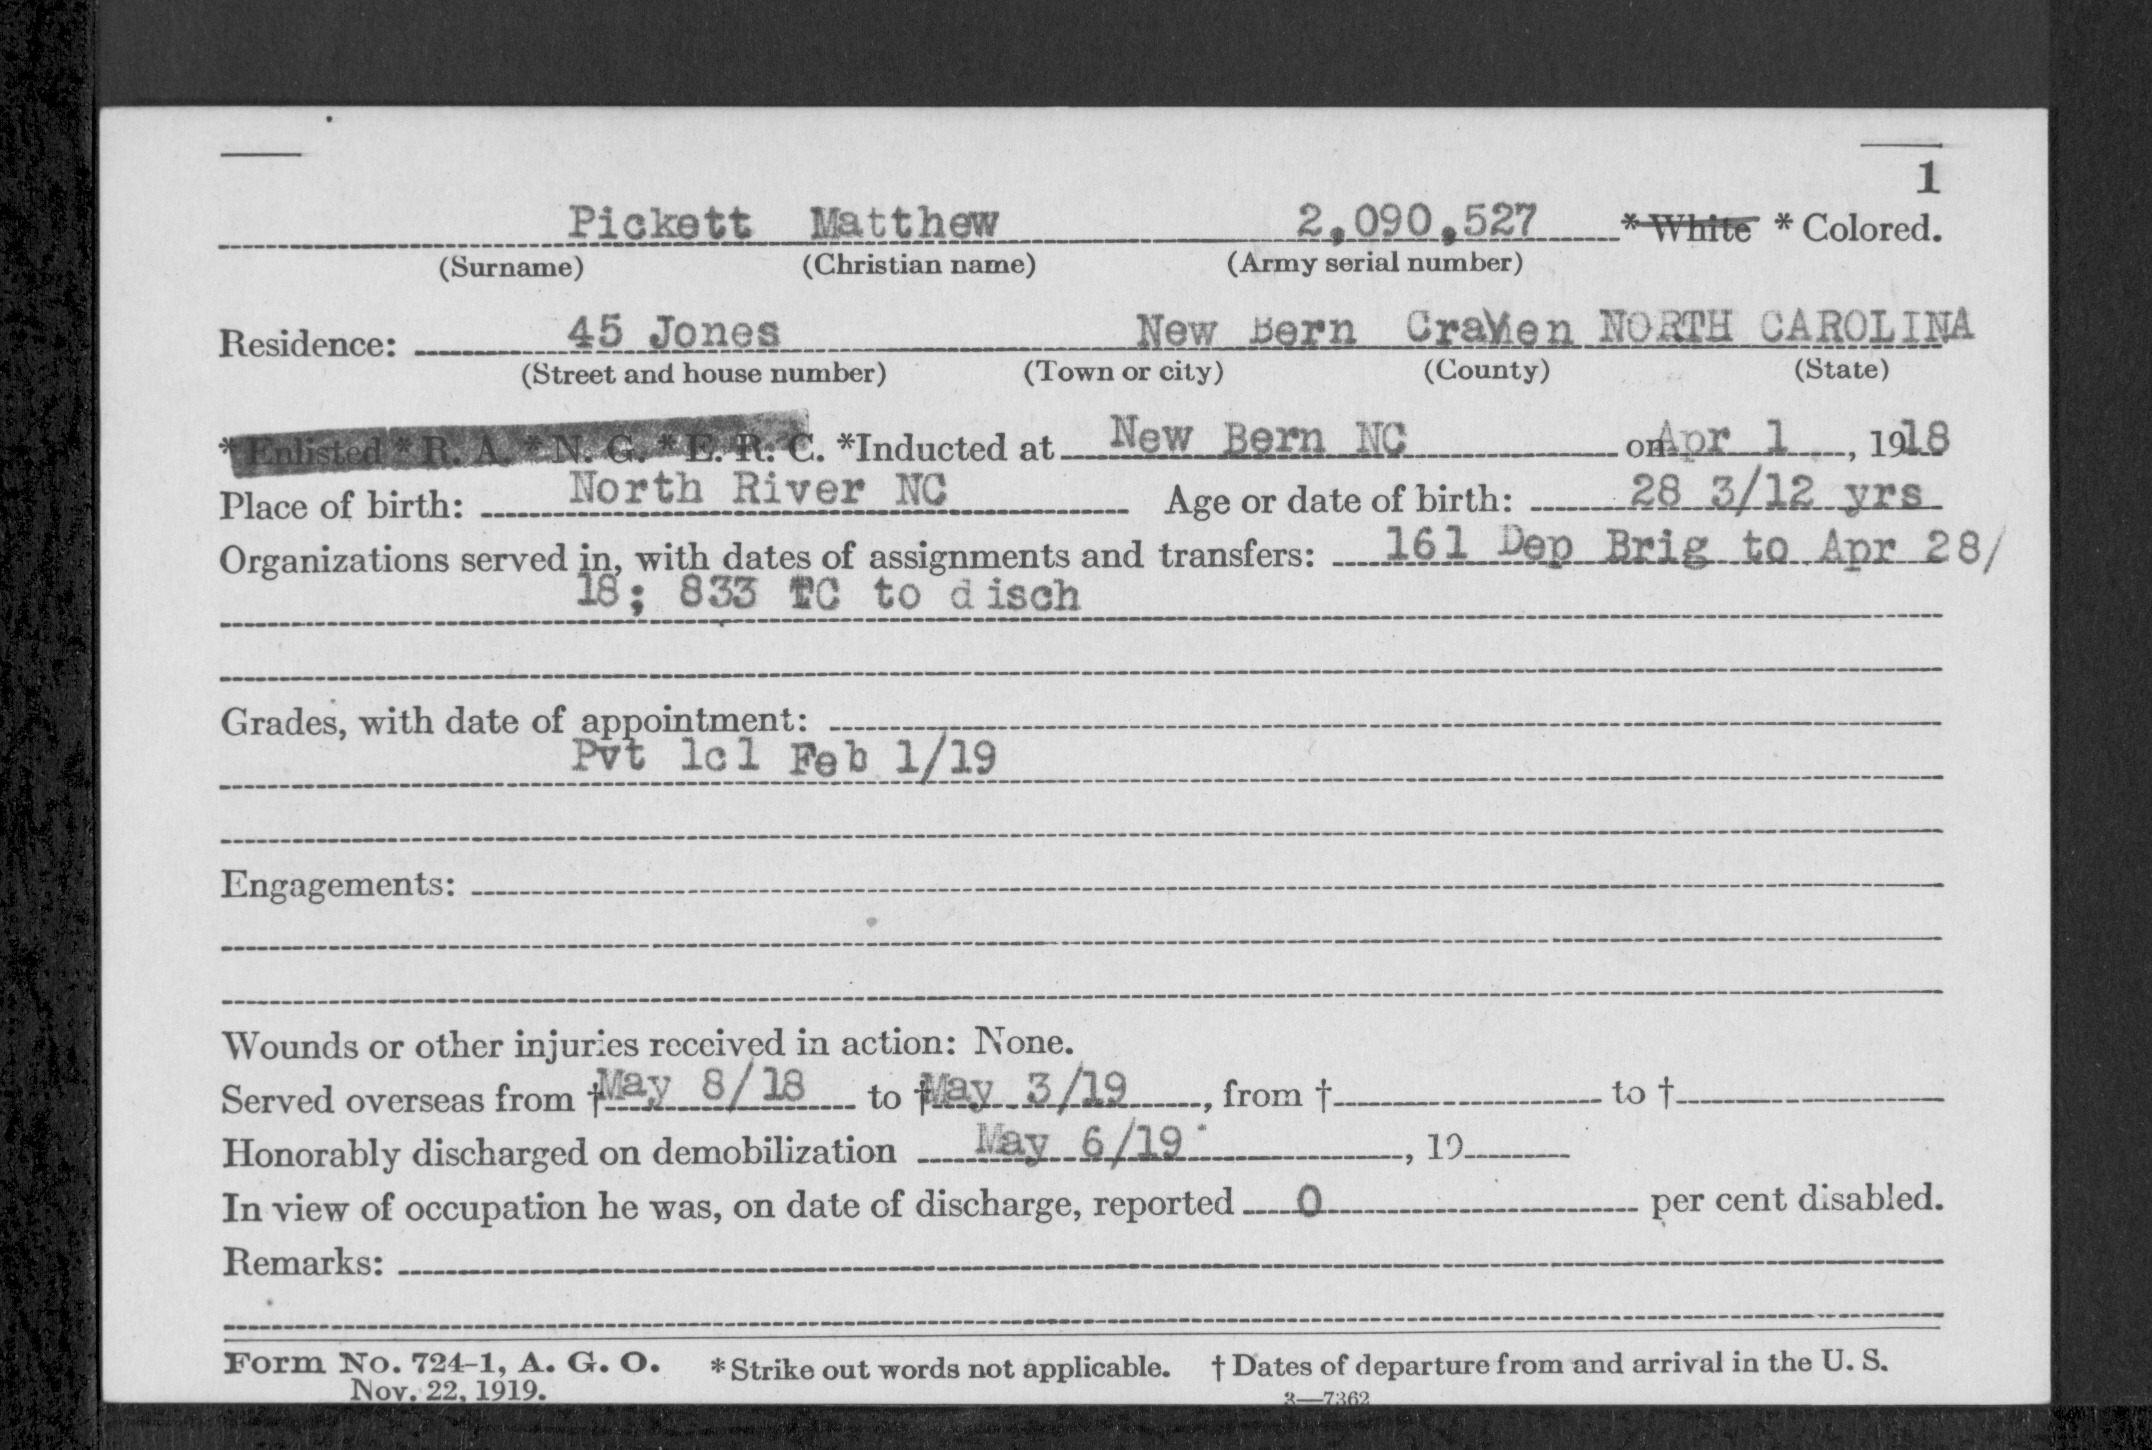 1
Pickett Matthew 2,090,527 * White * Colored.
(Surname) (Christian name) (Army serial number)
Residence: 45 Jones New Bern Craven NORTH CAROLINA
(Street and house number) (Town or city) (County) (State)
* Enlisted * R. A. * N. G. * E. R. C. *Inducted at New Bern NC on Apr 1, 1918
Place of birth: North River NC Age or date of birth: 28 3/12 yrs
Organizations served in, with dates of assignments and transfers: 161 Dep Brig to Apr 28/
18; 833 TC to disch
Grades, with date of appointment:
Pvt 1cl Feb 1/19
Engagements:
Wounds or other injuries received in action: None.
Served overseas from † May 8/18 to † May 3/19, from † to †
Honorably discharged on demobilization May 6/19, 19
In view of occupation he was, on date of discharge, reported 0 per cent disabled.
Remarks:
Form No. 724-1, A. G. O. * Strike out words not applicable. † Dates of departure from and arrival in the U. S.
Nov. 22, 1919. 3—7362